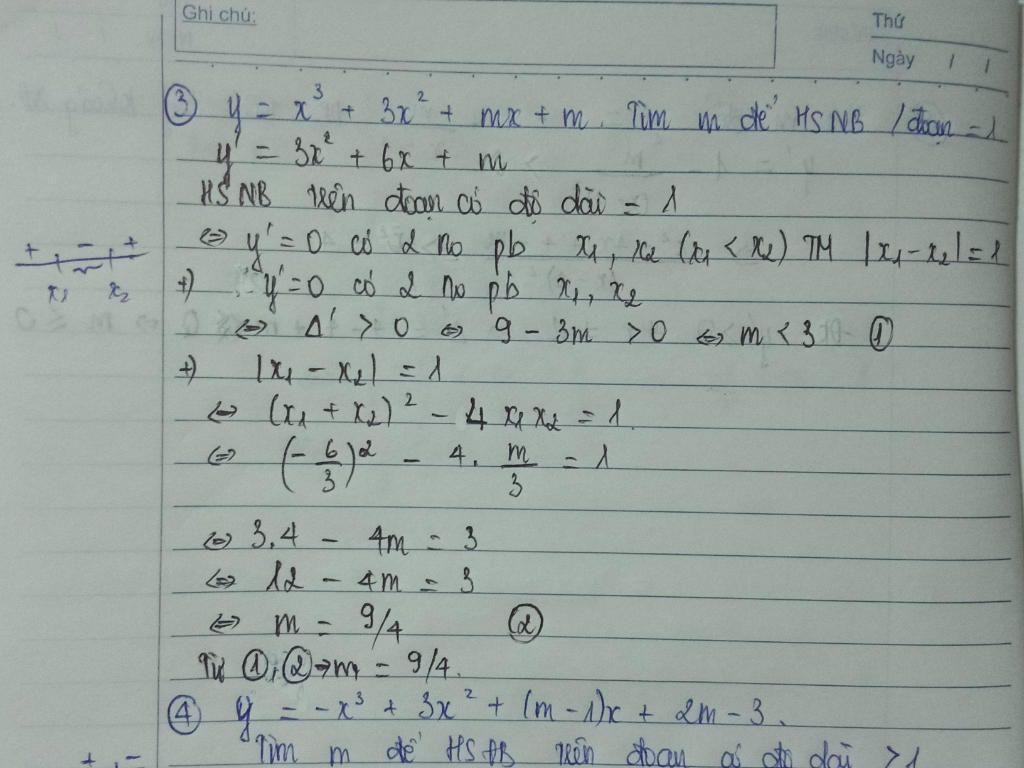 Ghi chú:
Thứ
Ngày / /
③ y = x³ + 3x² + mx + m. Tìm m để HSNB /đoạn = 1
y' = 3x² + 6x + m
HSNB trên đoạn có độ dài = 1
⇔ y' = 0 có 2 no pb x₁, x₂ (x₁ < x₂) TM |x₁ - x₂| = 1
+ - +
x₁ x₂
+) y' = 0 có 2 no pb x₁, x₂
⇔ Δ' > 0 ⇔ 9 - 3m > 0 ⇔ m < 3 ①
+) |x₁ - x₂| = 1
⇔ (x₁ + x₂)² - 4 x₁x₂ = 1
⇔ (-6/3)² - 4. m/3 = 1
⇔ 3.4 - 4m = 3
⇔ 12 - 4m = 3
⇔ m = 9/4 ②
Từ ①, ② → m = 9/4.
④ y = -x³ + 3x² + (m-1)x + 2m - 3.
Tìm m để HSĐB trên đoạn có độ dài > 1
+ -